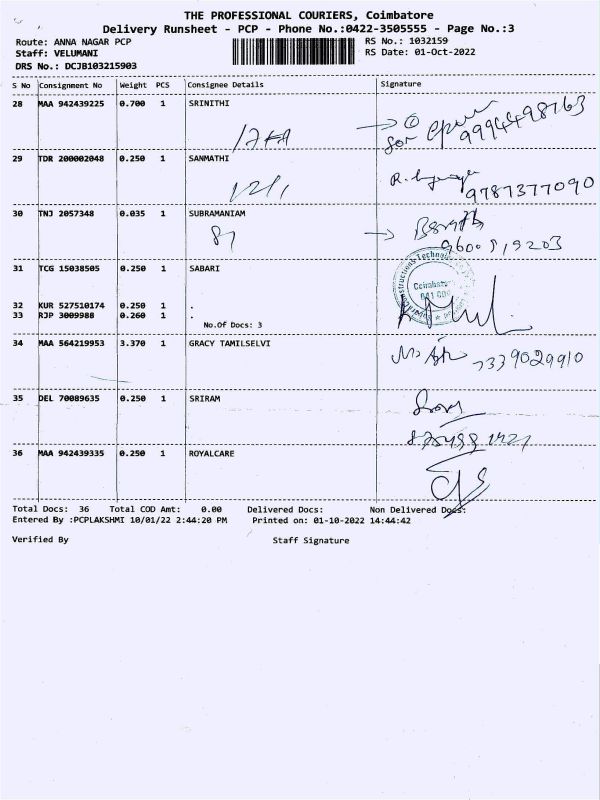 THE PROFESSIONAL COURIERS, Coimbatore
Delivery Runsheet - PCP - Phone No.:0422-3505555 - Page No.:3
Route: ANNA NAGAR PCP RS No.: 1032159
Staff: VELUMANI RS Date: 01-Oct-2022
DRS No.: DCJB103215903
S No Consignment No Weight PCS Consignee Details Signature
28 MAA 942439225 0.700 1 SRINITHI
for 9994498763
29 TDR 200002048 0.250 1 SANMATHI
9787377090
30 TNJ 2057348 0.035 1 SUBRAMANIAM
81 9600519203
31 TCG 15038505 0.250 1 SABARI
32 KUR 527510174 0.250 1 .
33 RJP 3009988 0.260 1 .
No.Of Docs: 3
34 MAA 564219953 3.370 1 GRACY TAMILSELVI
7339029910
35 DEL 70089635 0.250 1 SRIRAM
36 MAA 942439335 0.250 1 ROYALCARE
Total Docs: 36 Total COD Amt: 0.00 Delivered Docs: Non Delivered Docs:
Entered By :PCPLAKSHMI 10/01/22 2:44:20 PM Printed on: 01-10-2022 14:44:42
Verified By Staff Signature